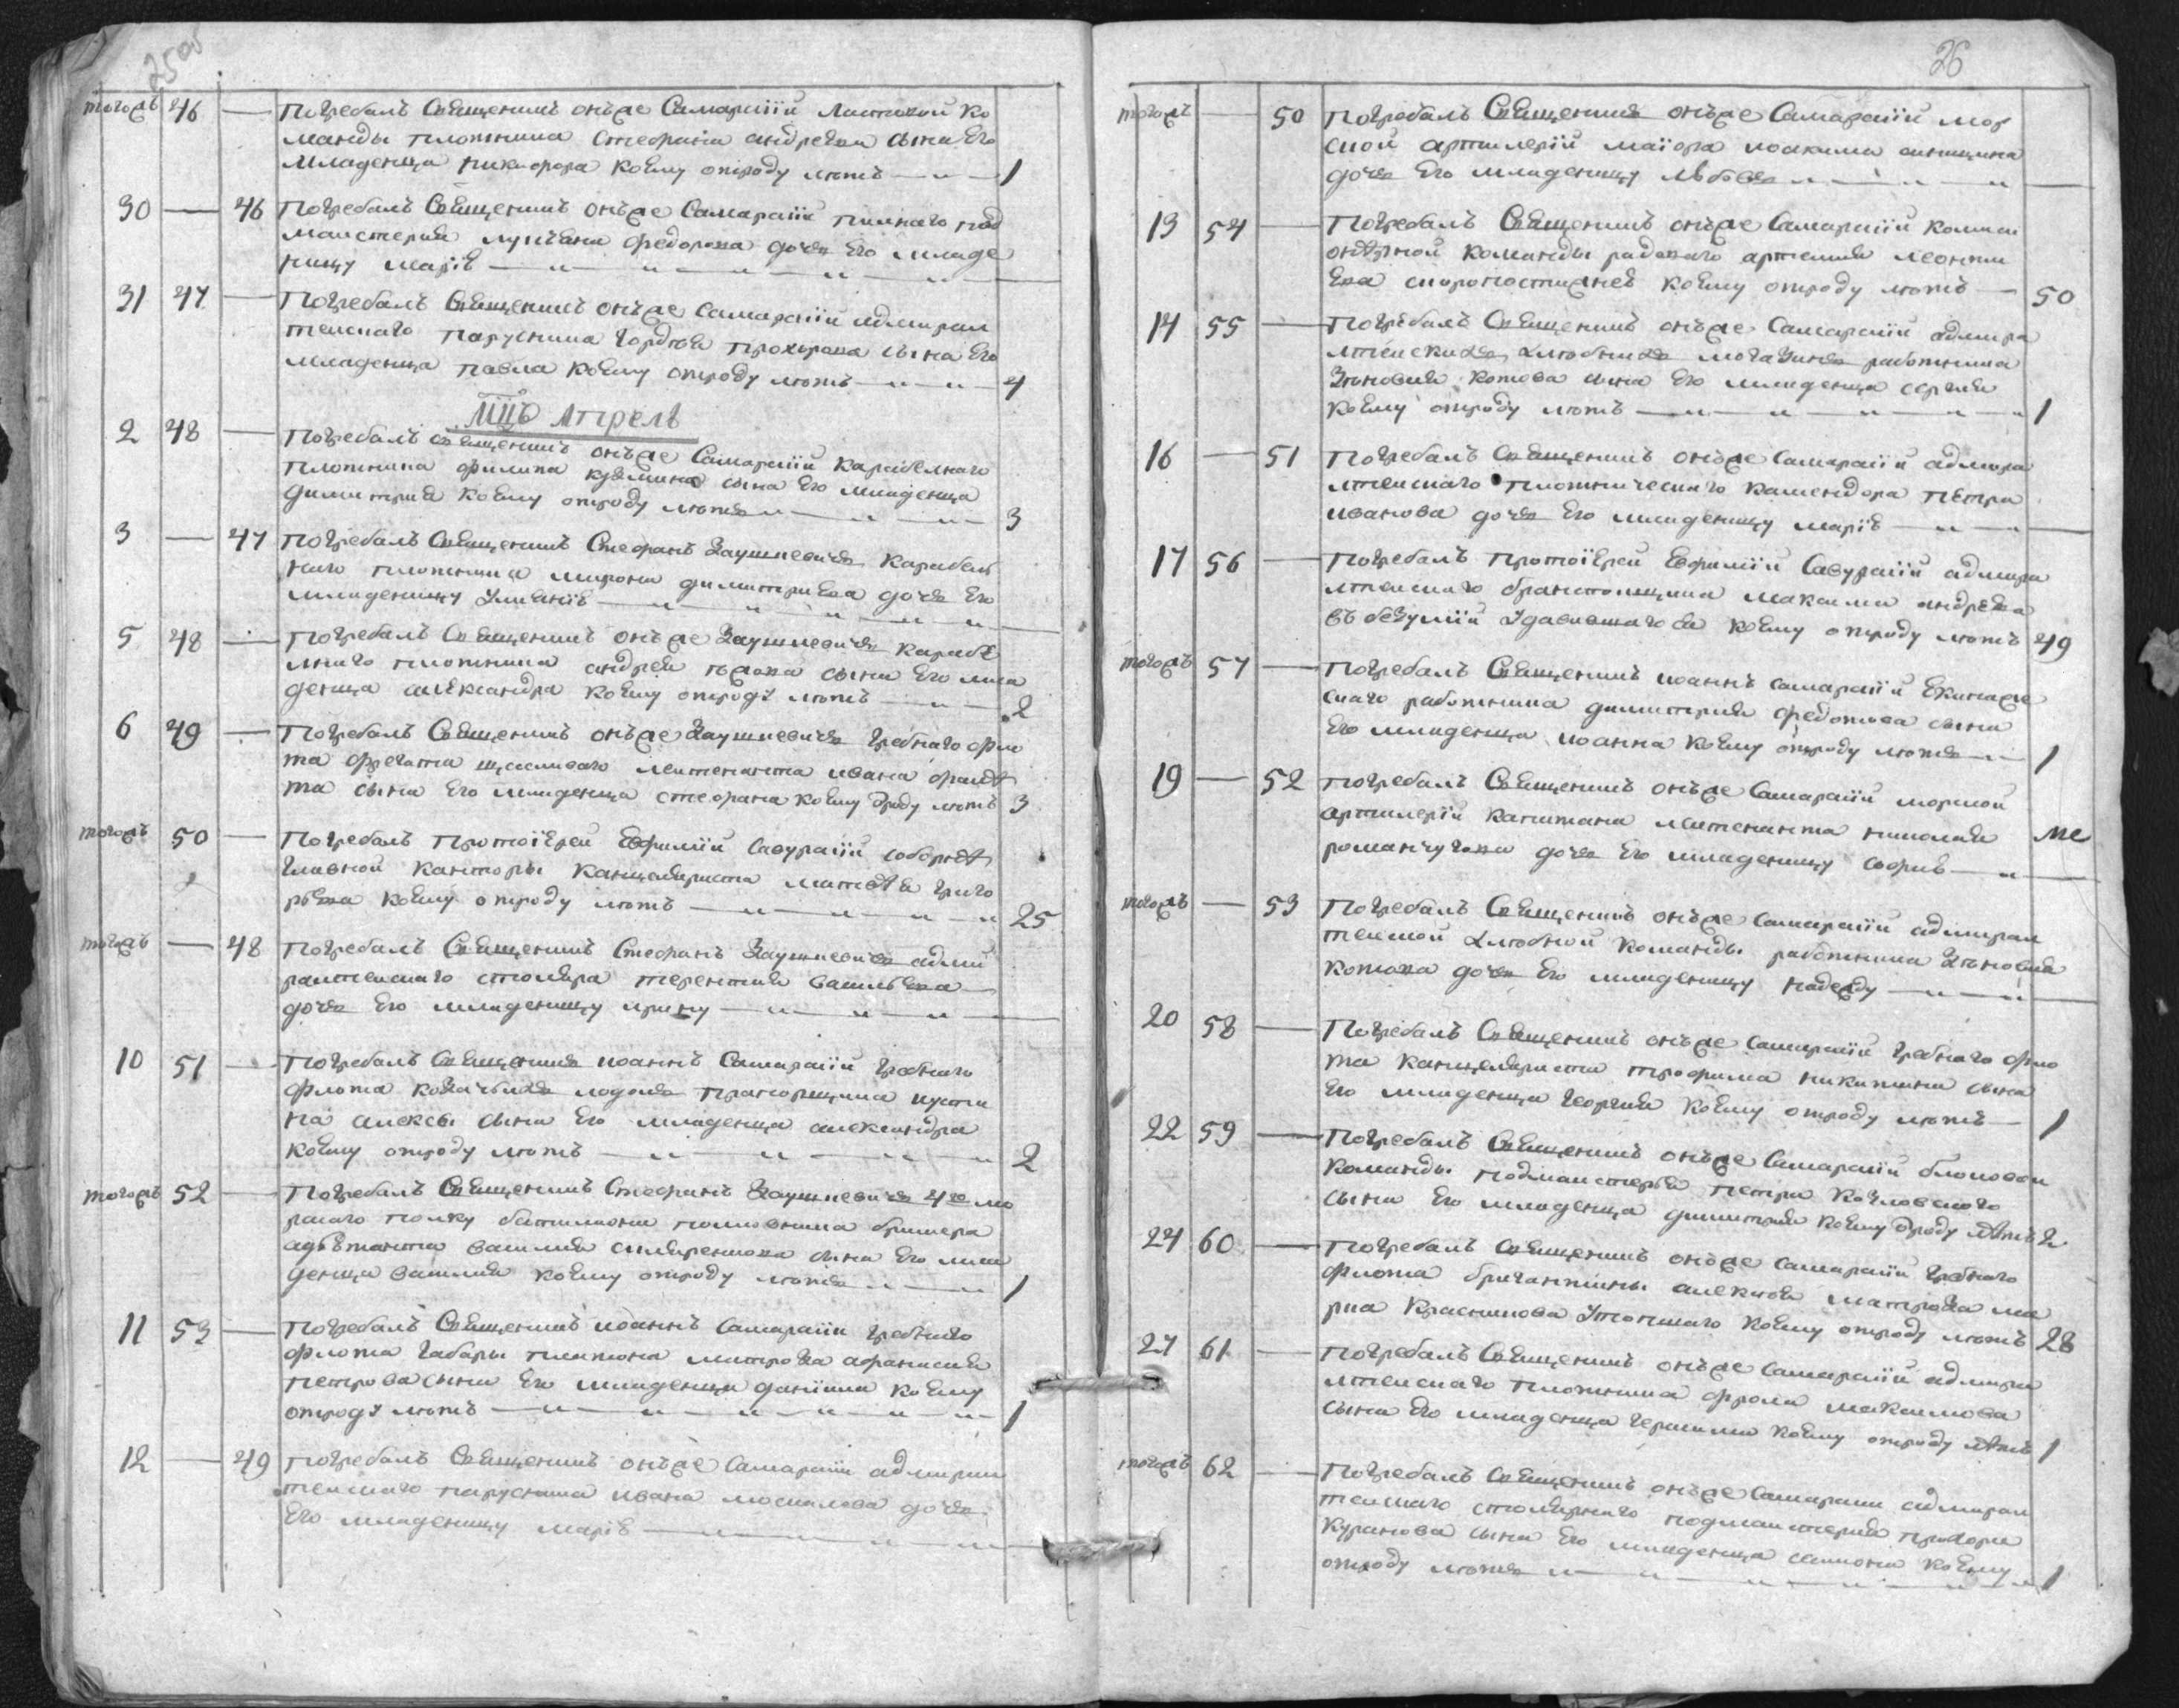 25об
тогожъ 46 — Погребалъ Священникъ онъже Самарскїй Ластовой ко
манды плотника Стефана андреева сына Его
Младенца никифора коему отроду летъ — 1
30 — 46 Погребалъ Священникъ онъже Самарскїй пилнаго под
мастерия федорова дочь Его младе
ницу марїю —
31 47 — Погребалъ Священникъ онъже Самарскїй адмирал
тейскаго парусника Гордея прохорова сына Его
младенца павла коему отроду летъ — 4
Мцъ Апрель
2 48 — Погребалъ священникъ онъже Самарскїй карабелнаго
плотника филипа кузмина сына Его младенца
димитрия коему отроду летъ — 3
3 — 47 Погребалъ Священникъ Стефанъ Заушкевичь карабел
наго плотника мирона димитриева дочь Его
младеницу —
5 48 — Погребалъ Священникъ онъже Заушкевичь карабе
лнаго плотника андрея сына Его мла
денца александра коему отроду летъ — 2
6 49 — Погребалъ Священникъ онъже Заушкевичь гребнаго фло
та фрегата щасливаго леитенанта ивана
та сына Его младенца стефана коему отроду летъ 3
тогожъ 50 — Погребалъ Протоїерей Евфимїй Савурскїй
Главной канторы канцеляриста матвея григо
рьева коему отроду летъ — 25
тогожъ — 48 Погребалъ Священникъ Стефанъ Заушкевичь адми
ралтейскаго столяра терентия васильева
дочь Его младеницу ирину —
10 51 — Погребалъ Священникъ иоаннъ Самарскїй гребнаго
флота козачьихъ лодокъ прапорщика
на алексы сына Его младенца александра
коему отроду летъ — 2
тогожъ 52 — Погребалъ Священникъ Стефанъ Заушкевичь 4го мо
рскаго полку баталиона полковника
адьютанта василия сына Его мла
денца василия коему отроду летъ — 1
11 53 — Погребалъ Священникъ иоаннъ Самарскїй гребнаго
флота габары платона матроза афанасия
петрова сына Его младенца данїила коему
отроду летъ — 1
12 — 49 Погребалъ Священникъ онъже Самарскїй адмирал
тейскаго парусника ивана москалева дочь
Его младеницу марїю —
26
тогожъ — 50 Погребалъ Священникъ онъже Самарскїй мор
ской артилерїй маїора иоакима
дочь Его младеницу любовь —
13 54 — Погребалъ Священникъ онъже Самарскїй
команды рядоваго артемия леонти
ева скоропостижнее коему отроду летъ — 50
14 55 — Погребалъ Священникъ онъже Самарскїй адмира
лтейскихъ хлебныхъ магазинъ работника
Зеновия котова сына Его младенца сергия
коему отроду летъ — 1
16 — 51 Погребалъ Священникъ онъже Самарскїй адмира
лтейскаго плотническаго камендора петра
иванова дочь Его младеницу марїю —
17 56 — Погребалъ Протоїерей Евфимїй Савурскїй адмира
лтейскаго максима андреева
въ безумїи удавившагося коему отроду летъ 49
тогожъ 57 — Погребалъ Священникъ иоаннъ Самарскїй Екипаже
скаго работника димитрия федотова сына
Его младенца иоанна коему отроду летъ — 1
19 — 52 Погребалъ Священникъ онъже Самарскїй морской
артилерїй капитана леитенанта николая
романчукова дочь Его младеницу софию —
тогожъ — 53 Погребалъ Священникъ онъже Самарскїй адмирал
тейской хлебной команды работника Зеновия
котова дочь Его младеницу надежду —
20 58 — Погребалъ Священникъ онъже Самарскїй гребнаго фло
та канцеляриста трофима никитина сына
Его младенца георгия коему отроду летъ — 1
22 59 — Погребалъ Священникъ онъже Самарскїй блоковой
команды подмастерья петра козловского
сына Его младенца димитрия коему отроду летъ 2
24 60 — Погребалъ Священникъ онъже Самарскїй гребнаго
флота бригантины алексея матроза ма
рка красникова утопшаго коему отроду летъ 28
27 61 — Погребалъ Священникъ онъже Самарскїй адмира
лтейскаго плотника фрола максимова
сына Его младенца герасима коему отроду летъ 1
тогожъ 62 — Погребалъ Священникъ онъже Самарскїй адмирал
тейскаго столярнаго подмастерия прохора
куракова сына Его младенца симона коему
отроду летъ — 1